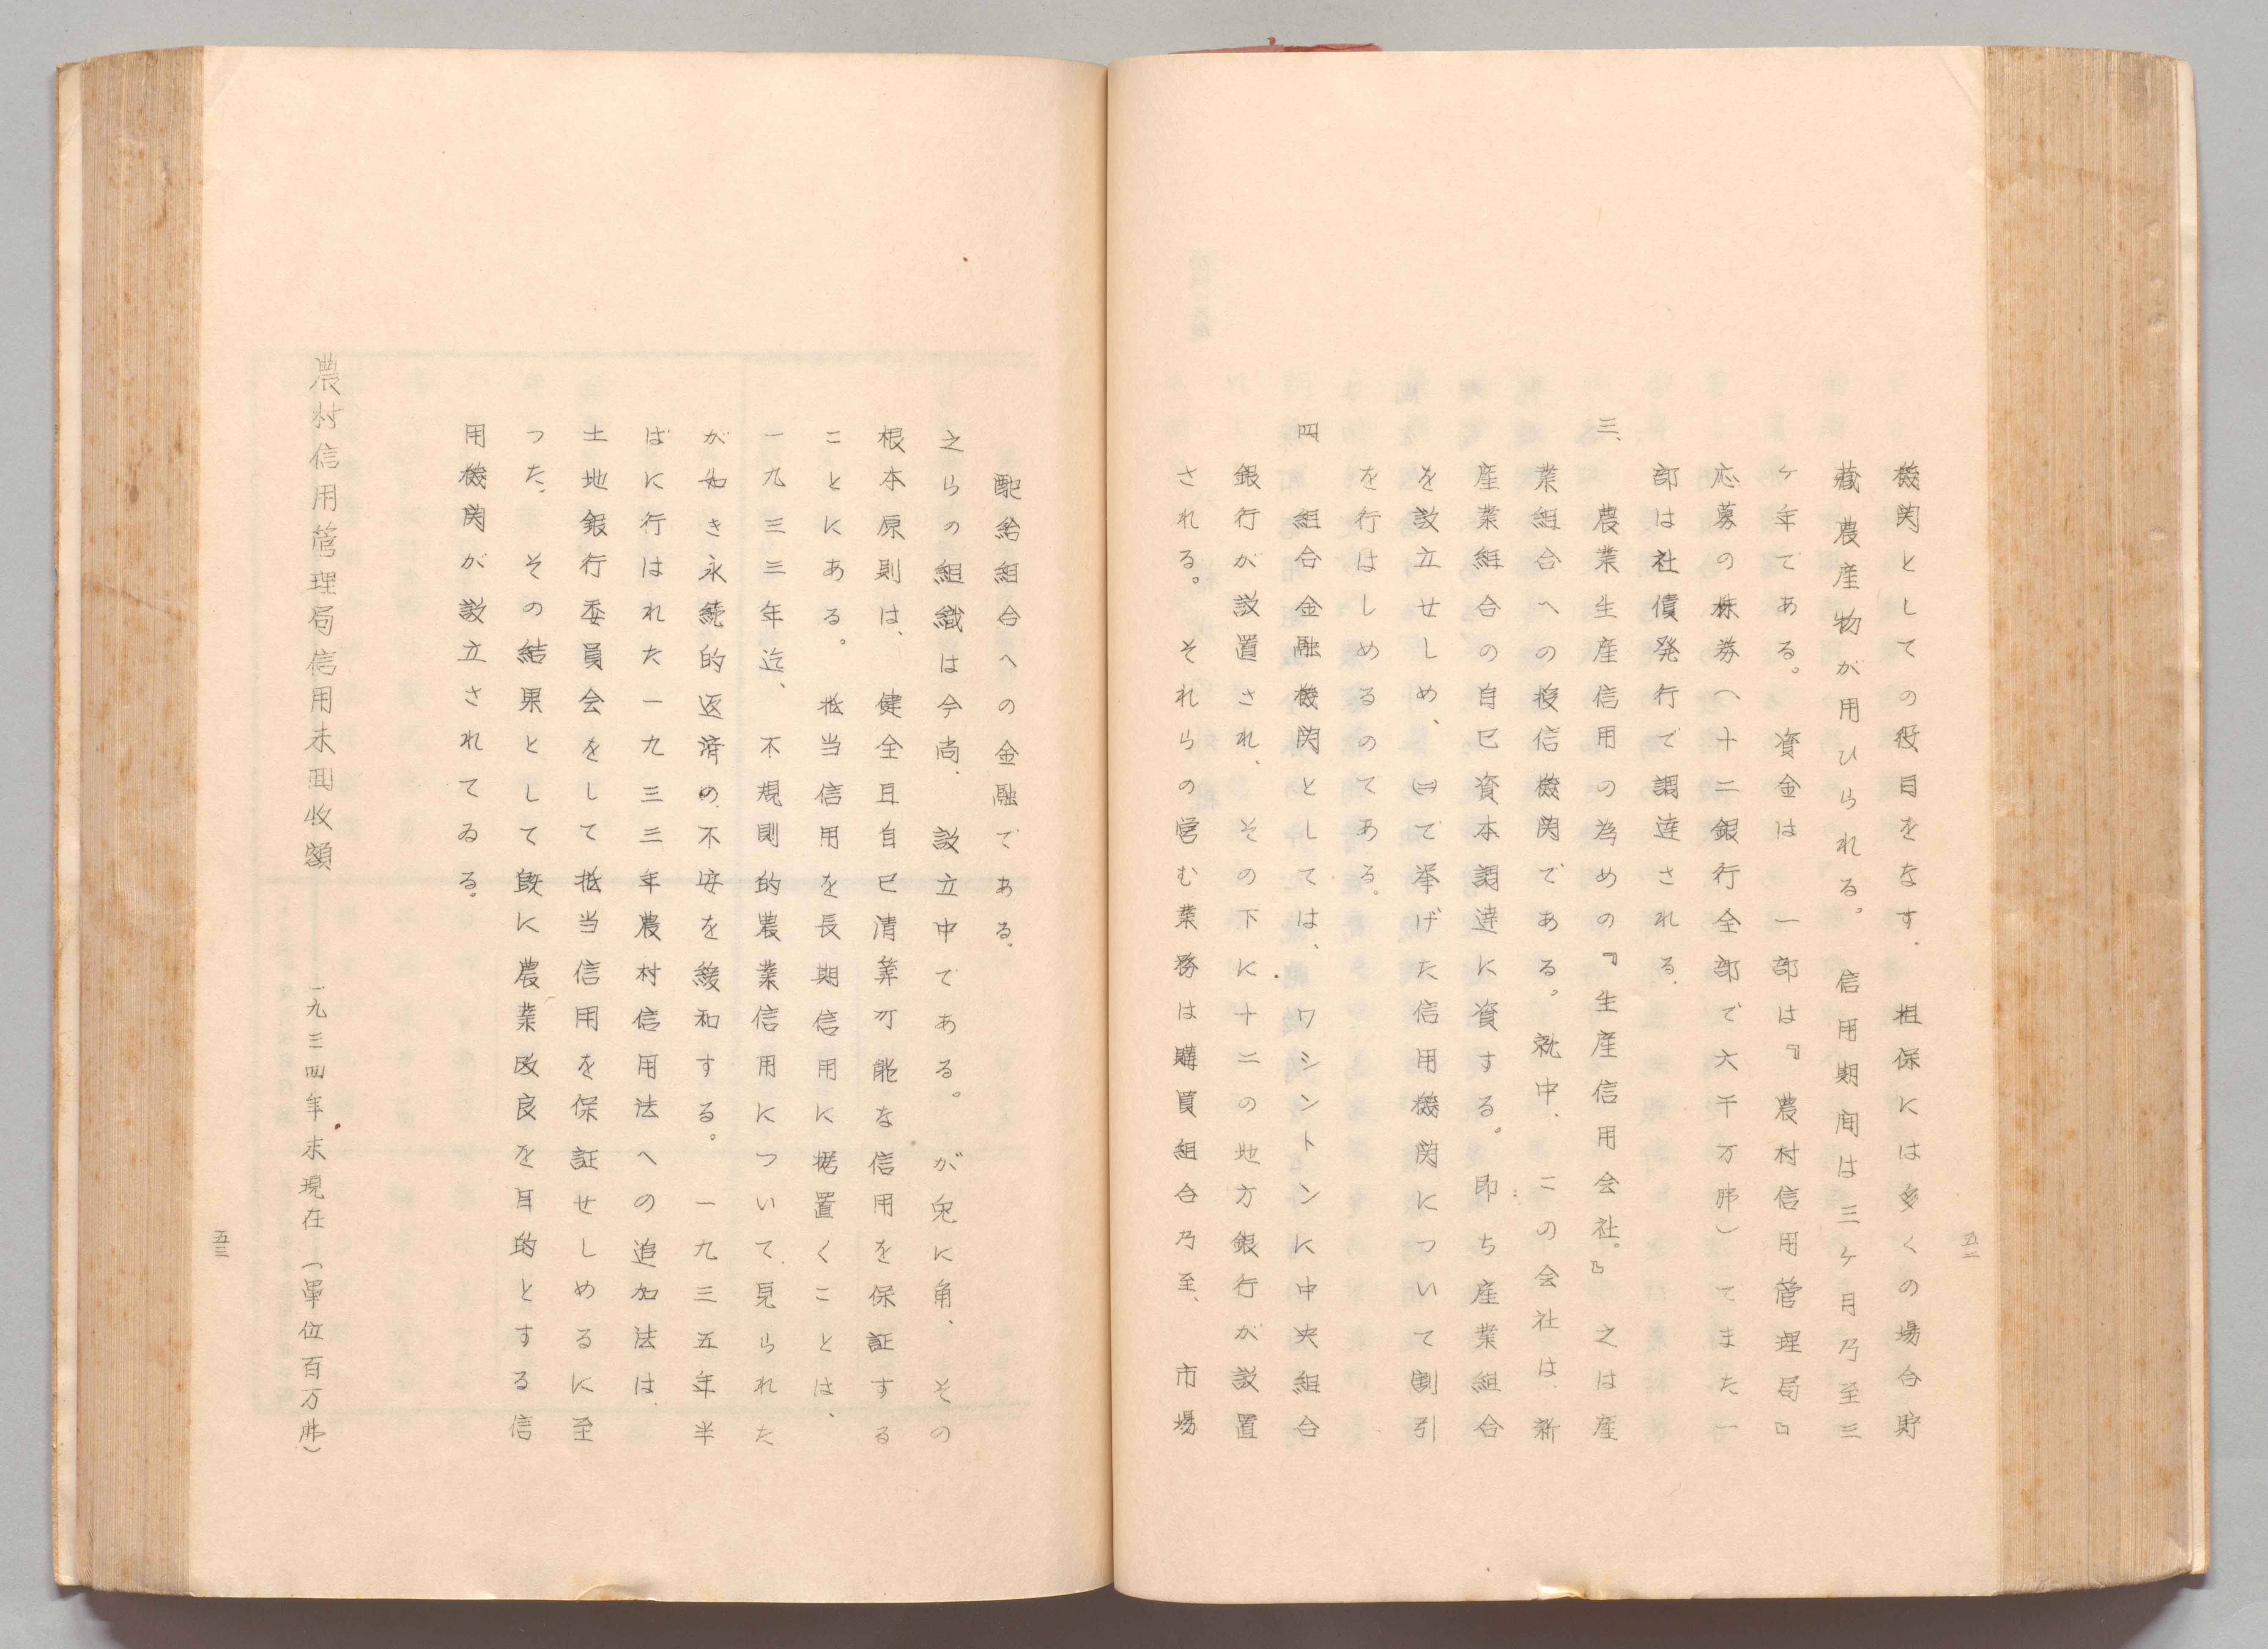 五二
機関としての役目をなす. 担保には多くの場合貯
蔵農産物が用ひられる。 信用期間は三ヶ月乃至三
ヶ年である。 資金は 一部は『農村信用管理局』
応募の株券(十二銀行全部で六千万弗)でまた一
部は社債発行で調達される.
三、 農業生産信用の為めの『生産信用会社。』之は産
業組合への授信機関である。就中、この会社は、新
産業組合の自己資本調達に資する。即ち産業組合
を設立せしめ、㈡で挙げた信用機関について割引
を行はしめるのてある。
四 組合金融機関としては、ワシントンに中央組合
銀行が設置され、その下に十二の地方銀行が設置
される。それらの営む業務は購買組合乃至、市場
配給組合への金融である。
之らの組織は今尚、設立中である。が兎に角、その
根本原則は、健全且自己清算可能な信用を保証する
ことにある。 抵当信用を長期信用に据置くことは、
一九三三年迄、不規則的農業信用について見られた
が如き永続的返済の不安を緩和する。一九三五年半
ばに行はれた一九三三年農村信用法への追加法は、
土地銀行委員会をして抵当信用を保証せしめるに至
つた。その結果として既に農業改良を目的とする信
用機関が設立されてゐる。
農村信用管理局信用未回收額――一九三四年末現在(單位百万弗)
五三